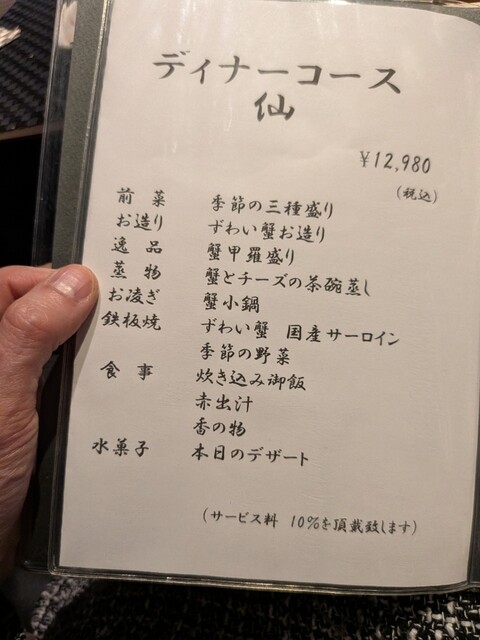 ディナーコース
仙
¥12,980
(税込)
前菜 季節の三種盛り
お造り ずわい蟹お造り
逸品 蟹甲羅盛り
蒸物 蟹とチーズの茶碗蒸し
お凌ぎ 蟹小鍋
鉄板焼 ずわい蟹 国産サーロイン
季節の野菜
食事 炊き込み御飯
赤出汁
香の物
水菓子 本日のデザート
(サービス料 10%を頂戴致します)